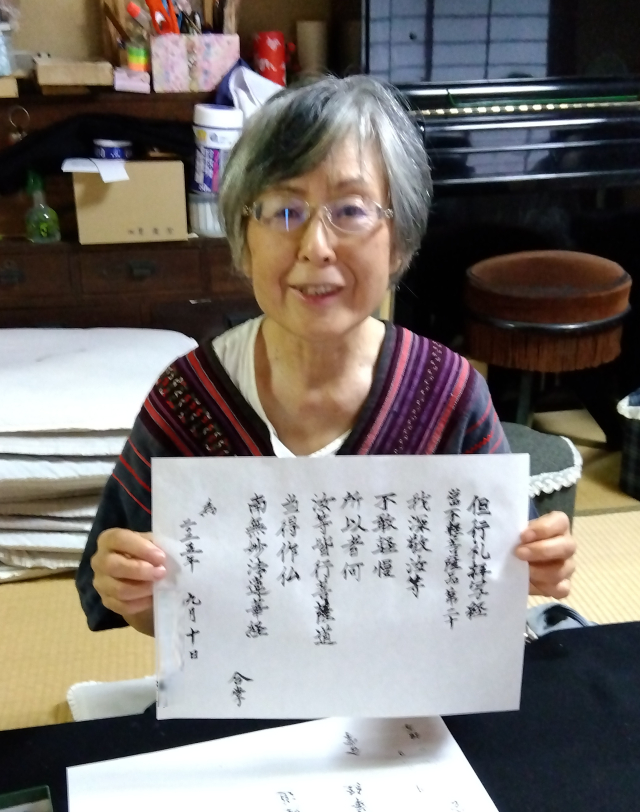 但行礼拝写経
常不軽菩薩品第二十
我深敬汝等
不敢軽慢
所以者何
汝等皆行菩薩道
当得作仏
南無妙法蓮華経
九月十日
合掌